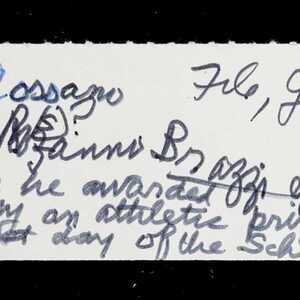 Rossano File, G
(s)?
Gianni Brazzi
he awarded
an athletic pri
day of the Sch